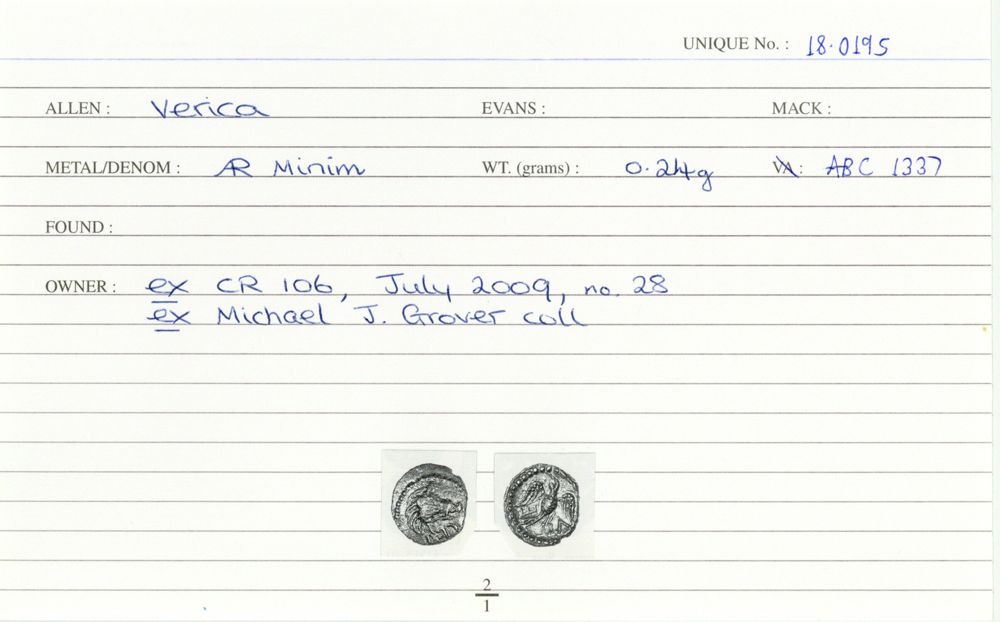 UNIQUE No. : 18·0195
ALLEN : Verica EVANS : MACK :
METAL/DENOM : AR Minim WT. (grams) : 0.24g VA : ABC 1337
FOUND :
OWNER : ex CR 106, July 2009, no. 28
ex Michael J. Grover coll
2
1